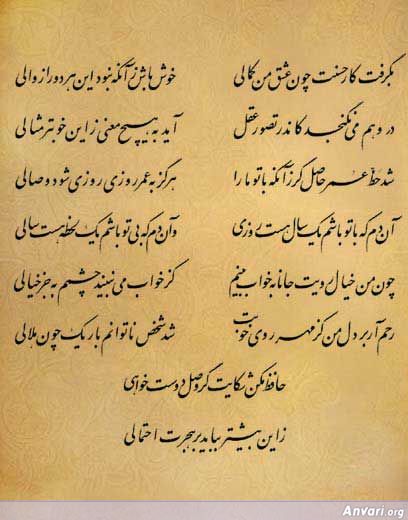 بگرفت کار حسنت چون عشق من کمالی خوش باش زآنکه نبود این هر دو را زوالی
در وهم می نگنجد کاندر تصور عقل آید به هیچ معنی زاین خوبتر مثالی
شد حظ عمر حاصل گر زآنکه با تو ما را هرگز به عمر روزی روزی شود وصالی
آن دم که با تو باشم یک سال هست روزی وآن دم که بی تو باشم یک لحظه هست سالی
چون من خیال رویت جانا به خواب بینم کز خواب می نبیند چشمم به جز خیالی
رحم آر بر دل من کز مهر روی خوبت شد شخص ناتوانم باریک چون هلالی
حافظ مکن شکایت گر وصل دوست خواهی
زاین بیشتر بباید بر هجرت احتمالی
Anvari.org